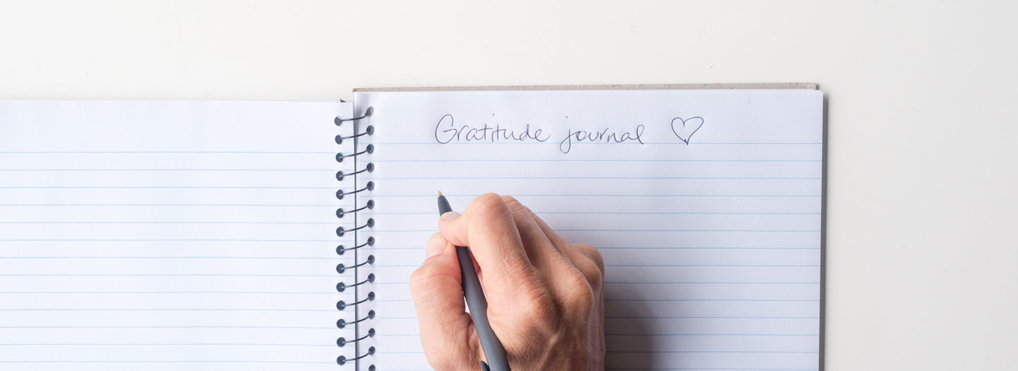 Gratitude journal ♡